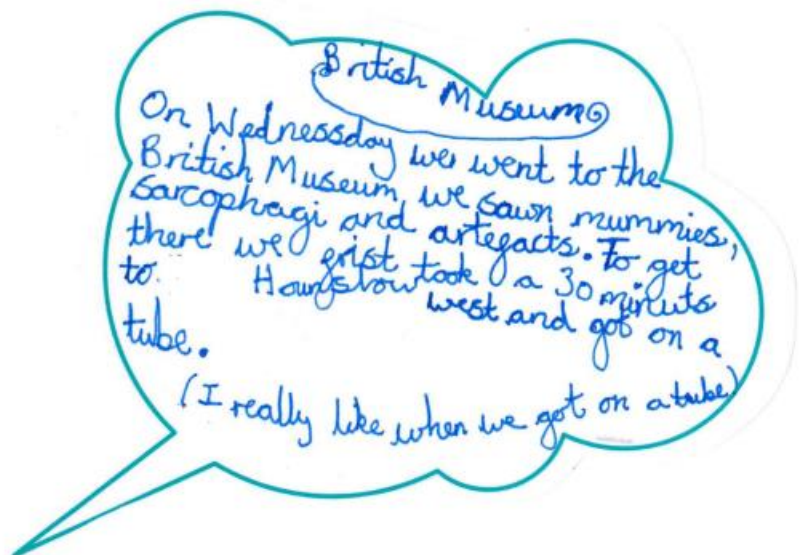 British Museum
On Wednessday we went to the
British Museum, we sawn mummies,
sarcophagi and artegacts. To get
there we frist took a 30 minuts
to Hounslow west and got on a
tube.
(I really like when we got on a tube)